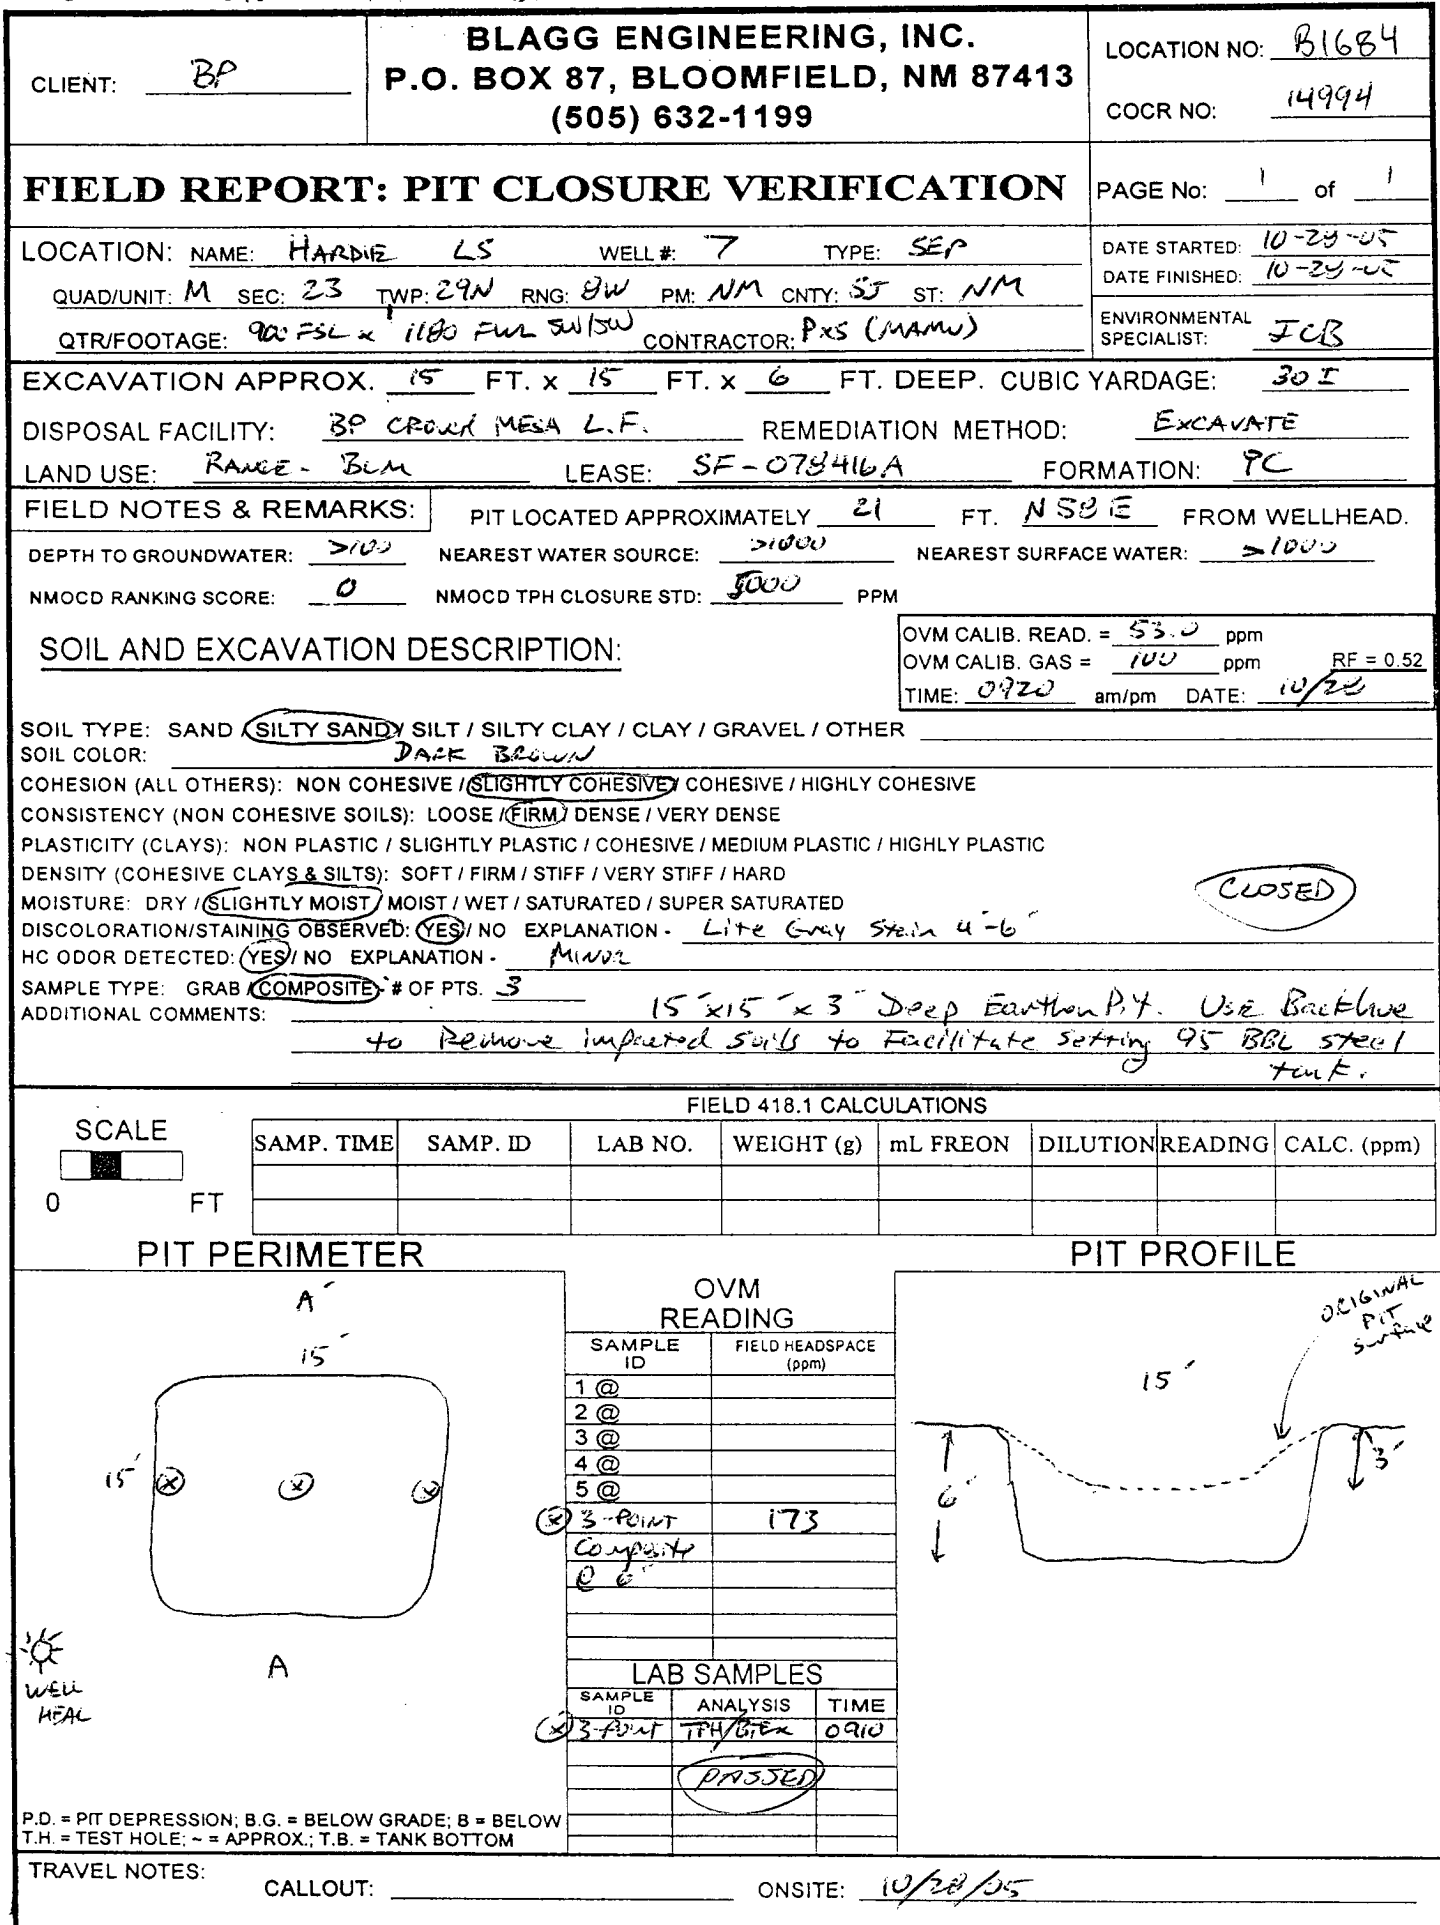 BLAGG ENGINEERING, INC.
P.O. BOX 87, BLOOMFIELD, NM 87413
(505) 632-1199
CLIENT: BP
LOCATION NO: B1684
COCR NO: 14994
FIELD REPORT: PIT CLOSURE VERIFICATION
PAGE No: 1 of 1
LOCATION: NAME: HARDIE LS WELL #: 7 TYPE: SEP
QUAD/UNIT: M SEC: 23 TWP: 29N RNG: 8W PM: NM CNTY: SJ ST: NM
QTR/FOOTAGE: 900 FSL x 1180 FWL SW/SW CONTRACTOR: P&S (MAMU)
DATE STARTED: 10-28-05
DATE FINISHED: 10-28-05
ENVIRONMENTAL
SPECIALIST: JCB
EXCAVATION APPROX. 15 FT. x 15 FT. x 6 FT. DEEP. CUBIC YARDAGE: 30 ±
DISPOSAL FACILITY: BP CROUCH MESA L.F. REMEDIATION METHOD: EXCAVATE
LAND USE: RANGE - BLM LEASE: SF-078416A FORMATION: PC
FIELD NOTES & REMARKS: PIT LOCATED APPROXIMATELY 21 FT. N58E FROM WELLHEAD.
DEPTH TO GROUNDWATER: >100 NEAREST WATER SOURCE: >1000 NEAREST SURFACE WATER: >1000
NMOCD RANKING SCORE: 0 NMOCD TPH CLOSURE STD: 5000 PPM
SOIL AND EXCAVATION DESCRIPTION:
OVM CALIB. READ. = 53.0 ppm
OVM CALIB. GAS = 100 ppm RF = 0.52
TIME: 0920 am/pm DATE: 10/28
SOIL TYPE: SAND / SILTY SAND / SILT / SILTY CLAY / CLAY / GRAVEL / OTHER
SOIL COLOR: DARK BROWN
COHESION (ALL OTHERS): NON COHESIVE / SLIGHTLY COHESIVE / COHESIVE / HIGHLY COHESIVE
CONSISTENCY (NON COHESIVE SOILS): LOOSE / FIRM / DENSE / VERY DENSE
PLASTICITY (CLAYS): NON PLASTIC / SLIGHTLY PLASTIC / COHESIVE / MEDIUM PLASTIC / HIGHLY PLASTIC
DENSITY (COHESIVE CLAYS & SILTS): SOFT / FIRM / STIFF / VERY STIFF / HARD
MOISTURE: DRY / SLIGHTLY MOIST / MOIST / WET / SATURATED / SUPER SATURATED
CLOSED
DISCOLORATION/STAINING OBSERVED: YES / NO EXPLANATION - Lite Gray Stain 4'-6'
HC ODOR DETECTED: YES / NO EXPLANATION - MINOR
SAMPLE TYPE: GRAB / COMPOSITE - # OF PTS. 3
ADDITIONAL COMMENTS: 15' x 15' x 3' Deep Earthen Pit. Use Backhoe
to Remove impacted soils to Facilitate Setting 95 BBL steel
tank.
FIELD 418.1 CALCULATIONS
SCALE
0 FT
SAMP. TIME SAMP. ID LAB NO. WEIGHT (g) mL FREON DILUTION READING CALC. (ppm)
PIT PERIMETER
A'
15'
15'
A
WELL
HEAD
OVM
READING
SAMPLE
ID
FIELD HEADSPACE
(ppm)
1 @
2 @
3 @
4 @
5 @
3-POINT 173
Composite
@ 6'
LAB SAMPLES
SAMPLE
ID
ANALYSIS TIME
3-POINT TPH/BTEX 0910
PASSED
PIT PROFILE
ORIGINAL
PIT
Surface
15'
6'
3'
P.D. = PIT DEPRESSION; B.G. = BELOW GRADE; B = BELOW
T.H. = TEST HOLE; ~ = APPROX.; T.B. = TANK BOTTOM
TRAVEL NOTES:
CALLOUT: ONSITE: 10/28/05